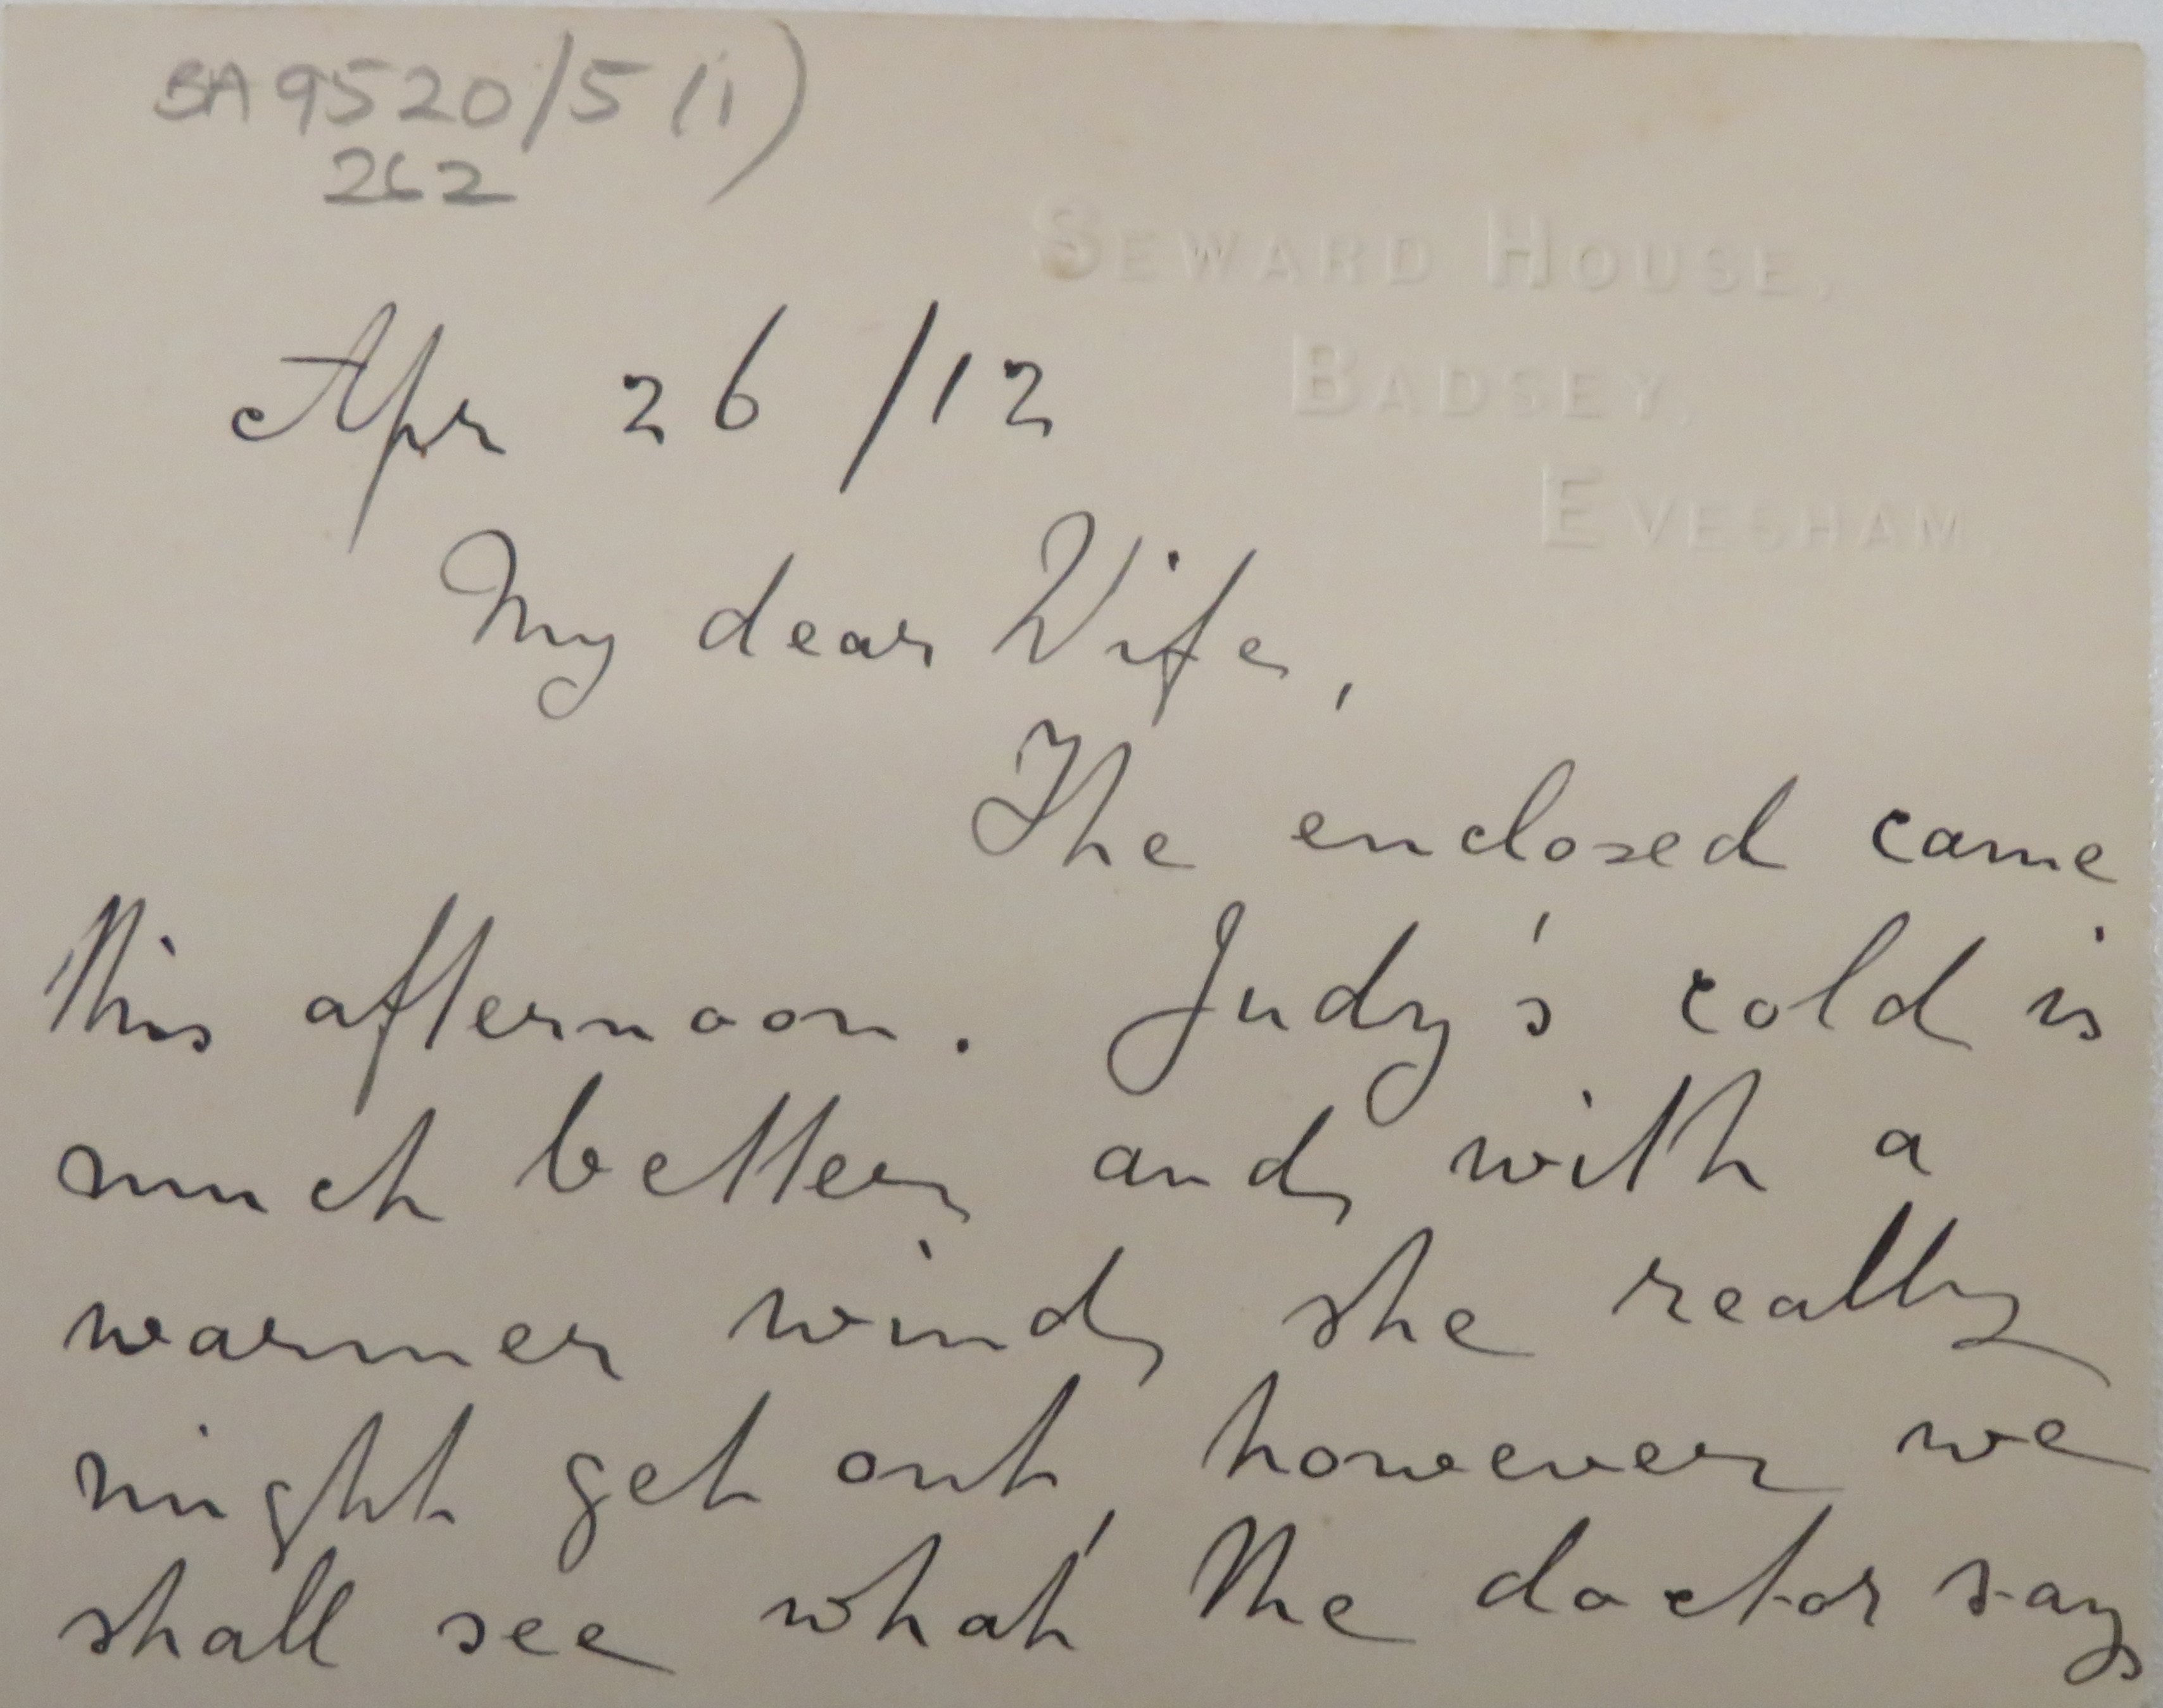 BA 9520/5 (i)
262
SEWARD HOUSE,
BADSEY,
EVESHAM.
Apr 26/12
My dear Wife,
The enclosed came
this afternoon. Judy's cold is
much better and with a
warmer wind she really
might get out, however we
shall see what the doctor says